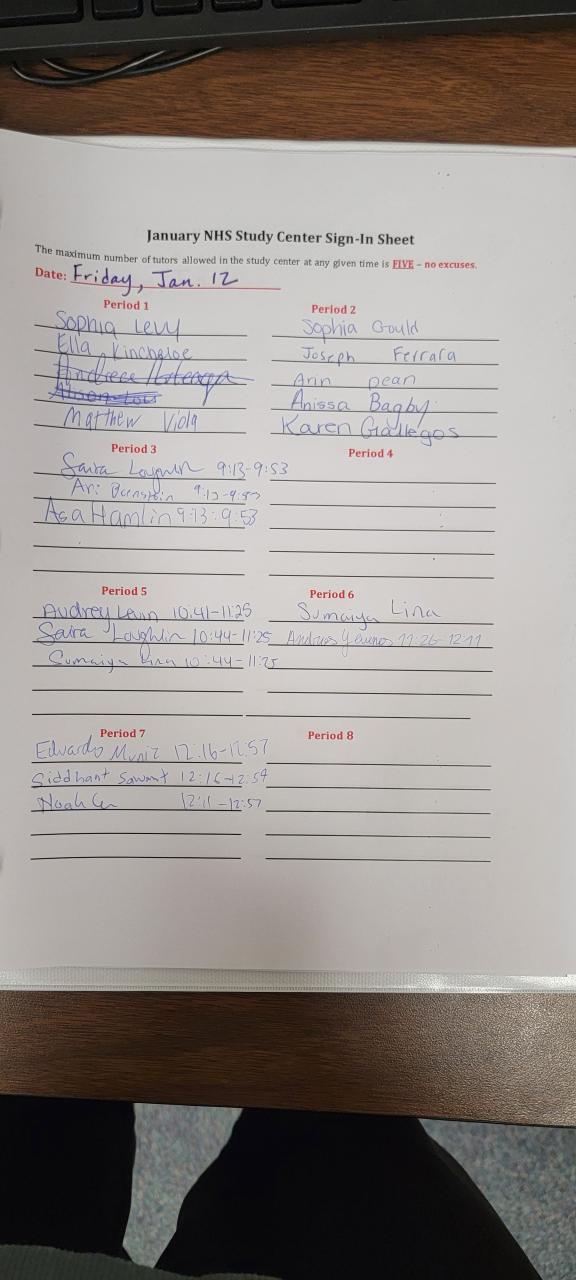 January NHS Study Center Sign-In Sheet
The maximum number of tutors allowed in the study center at any given time is FIVE – no excuses.
Date: Friday, Jan. 12
Period 1
Sophia Levy
Ella Kincheloe
Matthew Viola
Period 2
Sophia Gould
Joseph Ferrara
Ann Dean
Anissa Bagby
Karen Gallegos
Period 3
Saira Loughlin 9:13-9:53
Ari Bernstein 9:13-9:53
Asa Hamlin 9:13-9:53
Period 4
Period 5
Audrey Levin 10:41-11:25
Saira Loughlin 10:44-11:25
Sumaiya Lina 10:44-11:25
Period 6
Sumaiya Lina
11:26-12:11
Period 7
Eduardo Muniz 12:16-12:57
Siddhant Sawant 12:16-12:54
Noah 12:11-12:57
Period 8